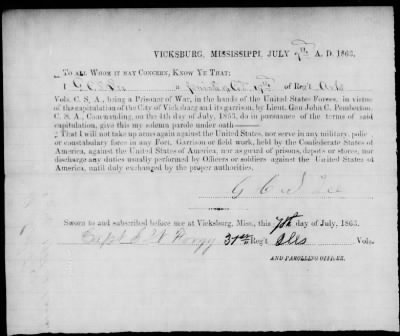 VICKSBURG, MISSISSIPPI, JULY 7th A. D. 1863.
TO ALL WHOM IT MAY CONCERN, KNOW YE THAT:
I G. C. S. Lee a Private of Co. of Reg't Ark
Vols. C. S. A., being a Prisoner of War, in the hands of the United States Forces, in virtue
of the capitulation of the City of Vicksburg and its garrison, by Lieut. Gen John C. Pemberton,
C. S. A., Commanding, on the 4th day of July, 1863, do in pursuance of the terms of said
capitulation, give this my solemn parole under oath——
That I will not take up arms again against the United States, nor serve in any military, police
or constabulary force in any Fort, Garrison or field work, held by the Confederate States of
America, against the United States of America, nor as guard of prisons, depots or stores, nor
discharge any duties usually performed by Officers or soldiers against the United States of
America, until duly exchanged by the proper authorities.
G C S Lee
Sworn to and subscribed before me at Vicksburg, Miss., this 7th day of July, 1863.
Capt 31st Reg't Ills Vols.
AND PAROLLING OFFICER.